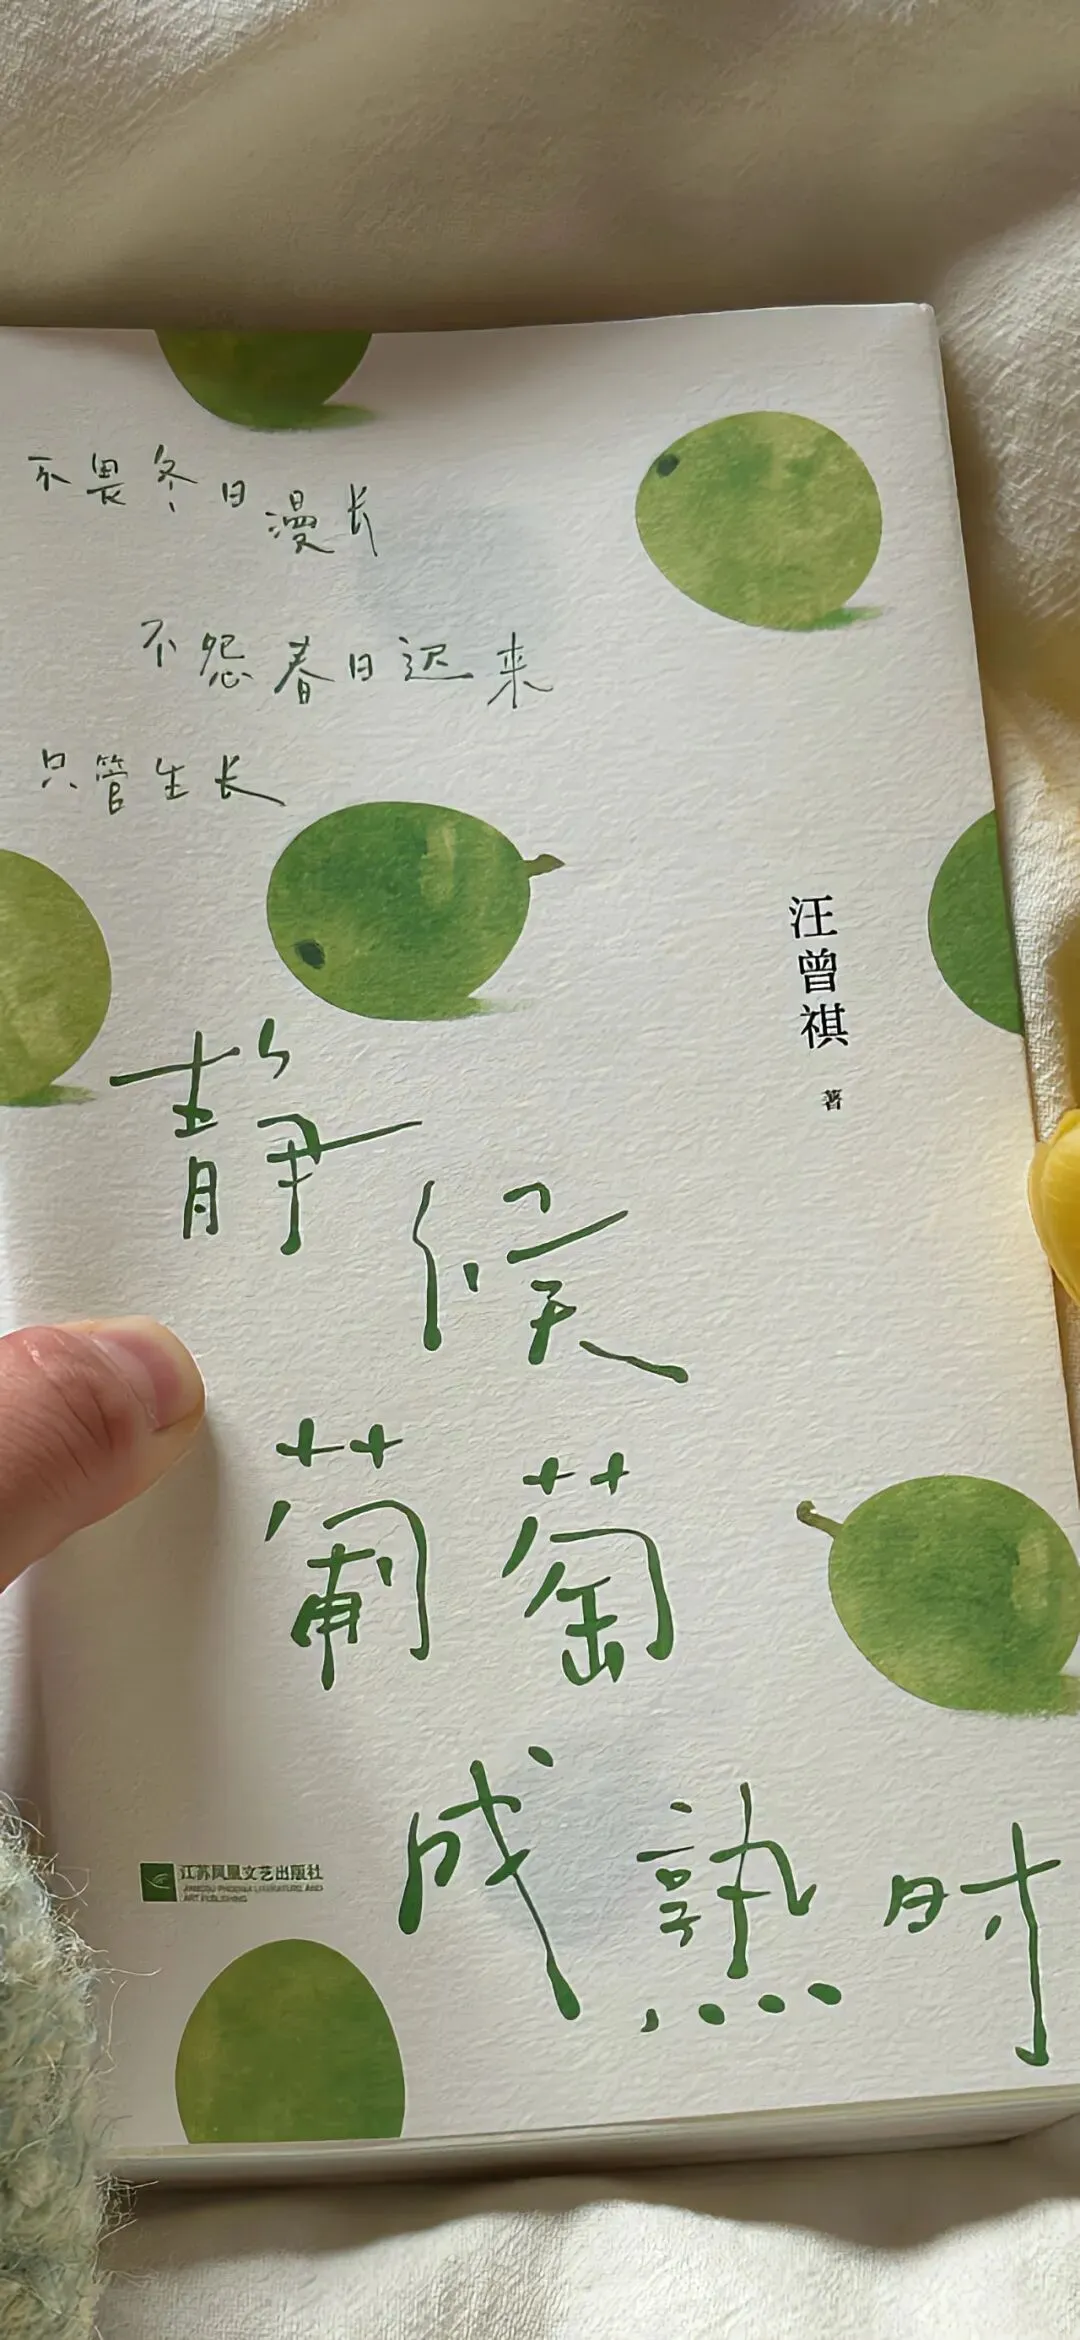 不畏冬日漫长
不怨春日迟来
只管生长
汪曾祺
著
静候
葡萄
成熟时
江苏凤凰文艺出版社
JIANGSU PHOENIX LITERATURE AND
ART PUBLISHING